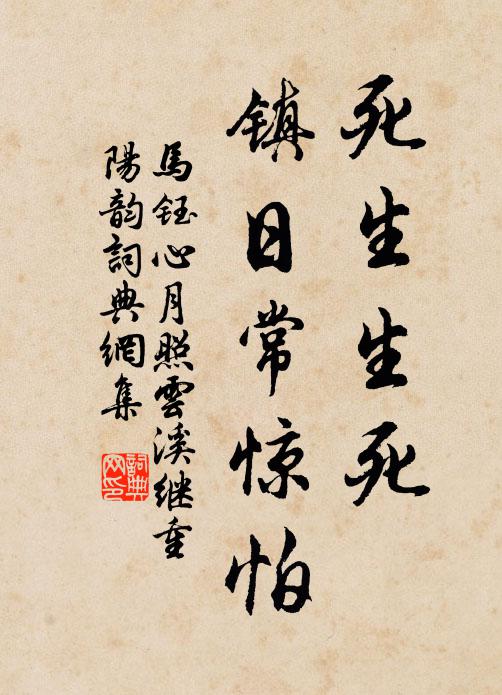 死生生死
镇日常惊怕
馬鈺心月照雲溪继重
陽韵詞典網集
詞典網印